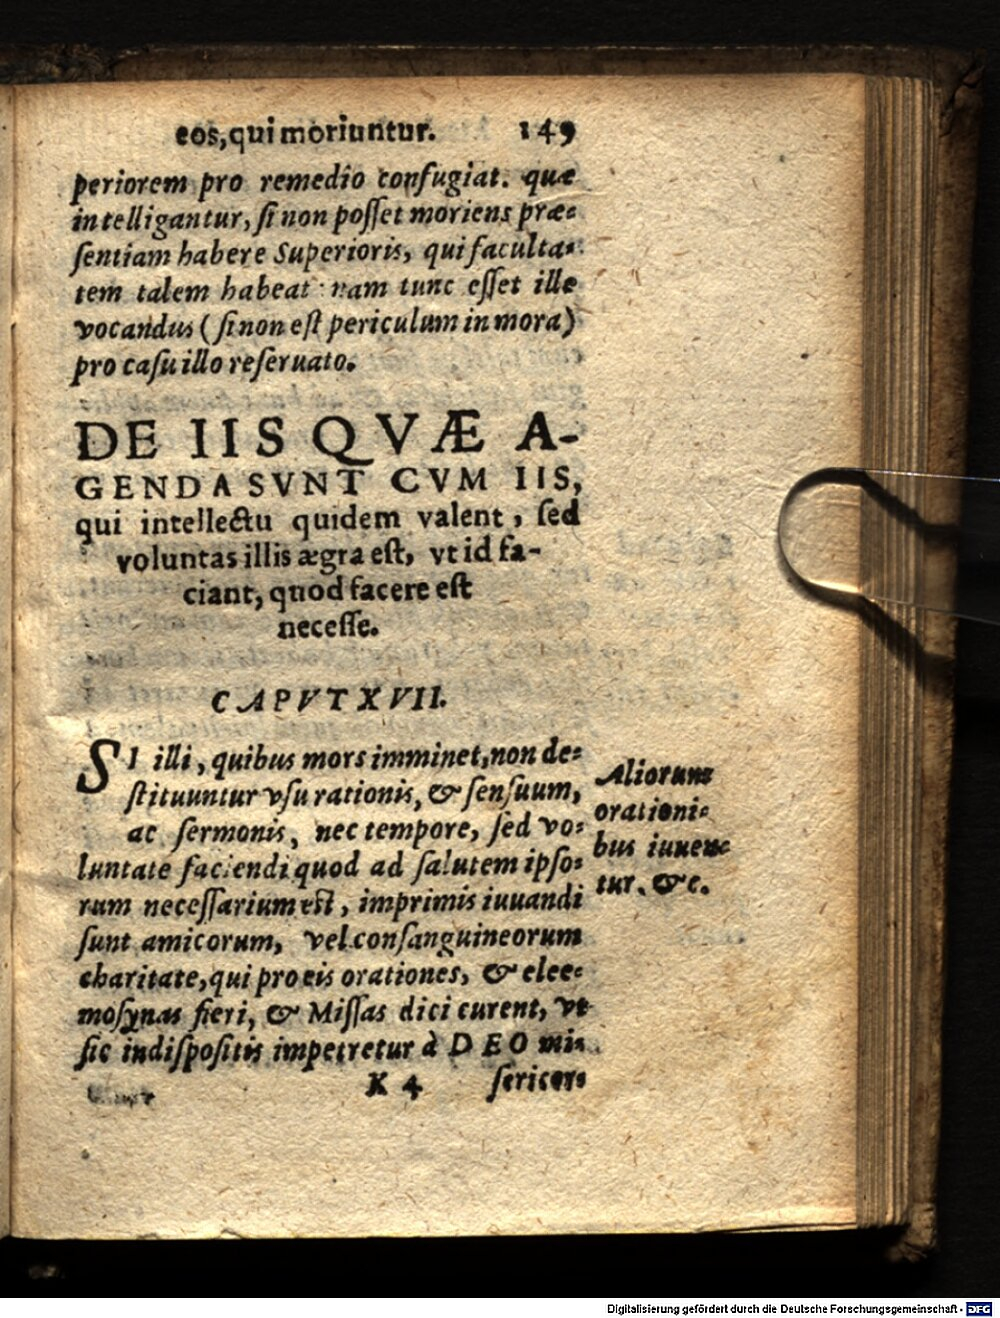 eos, qui moriuntur. 149
periorem pro remedio confugiat. quæ
intelligantur, ſi non poſſet moriens præ-
ſentiam habere Superioris, qui faculta-
tem talem habeat: nam tunc eſſet ille
vocandus (ſi non eſt periculum in mora)
pro caſu illo reſeruato.
DE IIS QVÆ A-
GENDA SVNT CVM IIS,
qui intellectu quidem valent, ſed
voluntas illis ægra eſt, vt id fa-
ciant, quod facere eſt
neceſſe.
CAPVT XVII.
SI illi, quibus mors imminet, non de-
ſtituuntur vſu rationis, & ſenſuum,
ac ſermonis, nec tempore, ſed vo-
luntate faciendi quod ad ſalutem ipſo-
rum neceſſarium eſt, imprimis iuuandi
ſunt amicorum, vel conſanguineorum
charitate, qui pro eis orationes, & elee-
moſynas fieri, & Miſſas dici curent, vt
ſic indiſpoſitis impetretur à DEO mi-
K 4 ſericor-
Aliorum
orationi-
bus iuuen-
tur. &c.
Digitalisierung gefördert durch die Deutsche Forschungsgemeinschaft - DFG